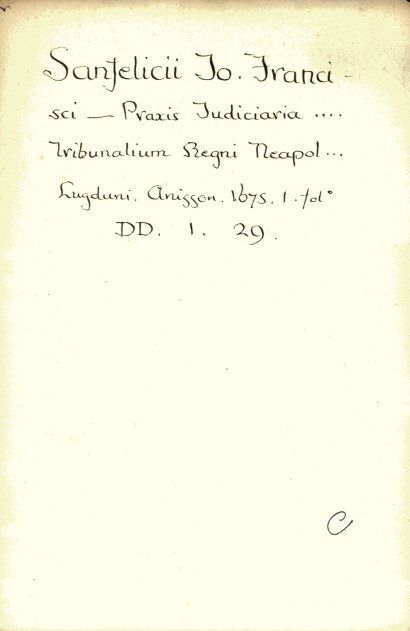 Sanfelicii Io. Franci-
sci — Praxis Iudiciaria ....
Tribunalium Regni Neapol...
Lugduni. Anisson. 1675. 1. fol°
DD. 1. 29.
C